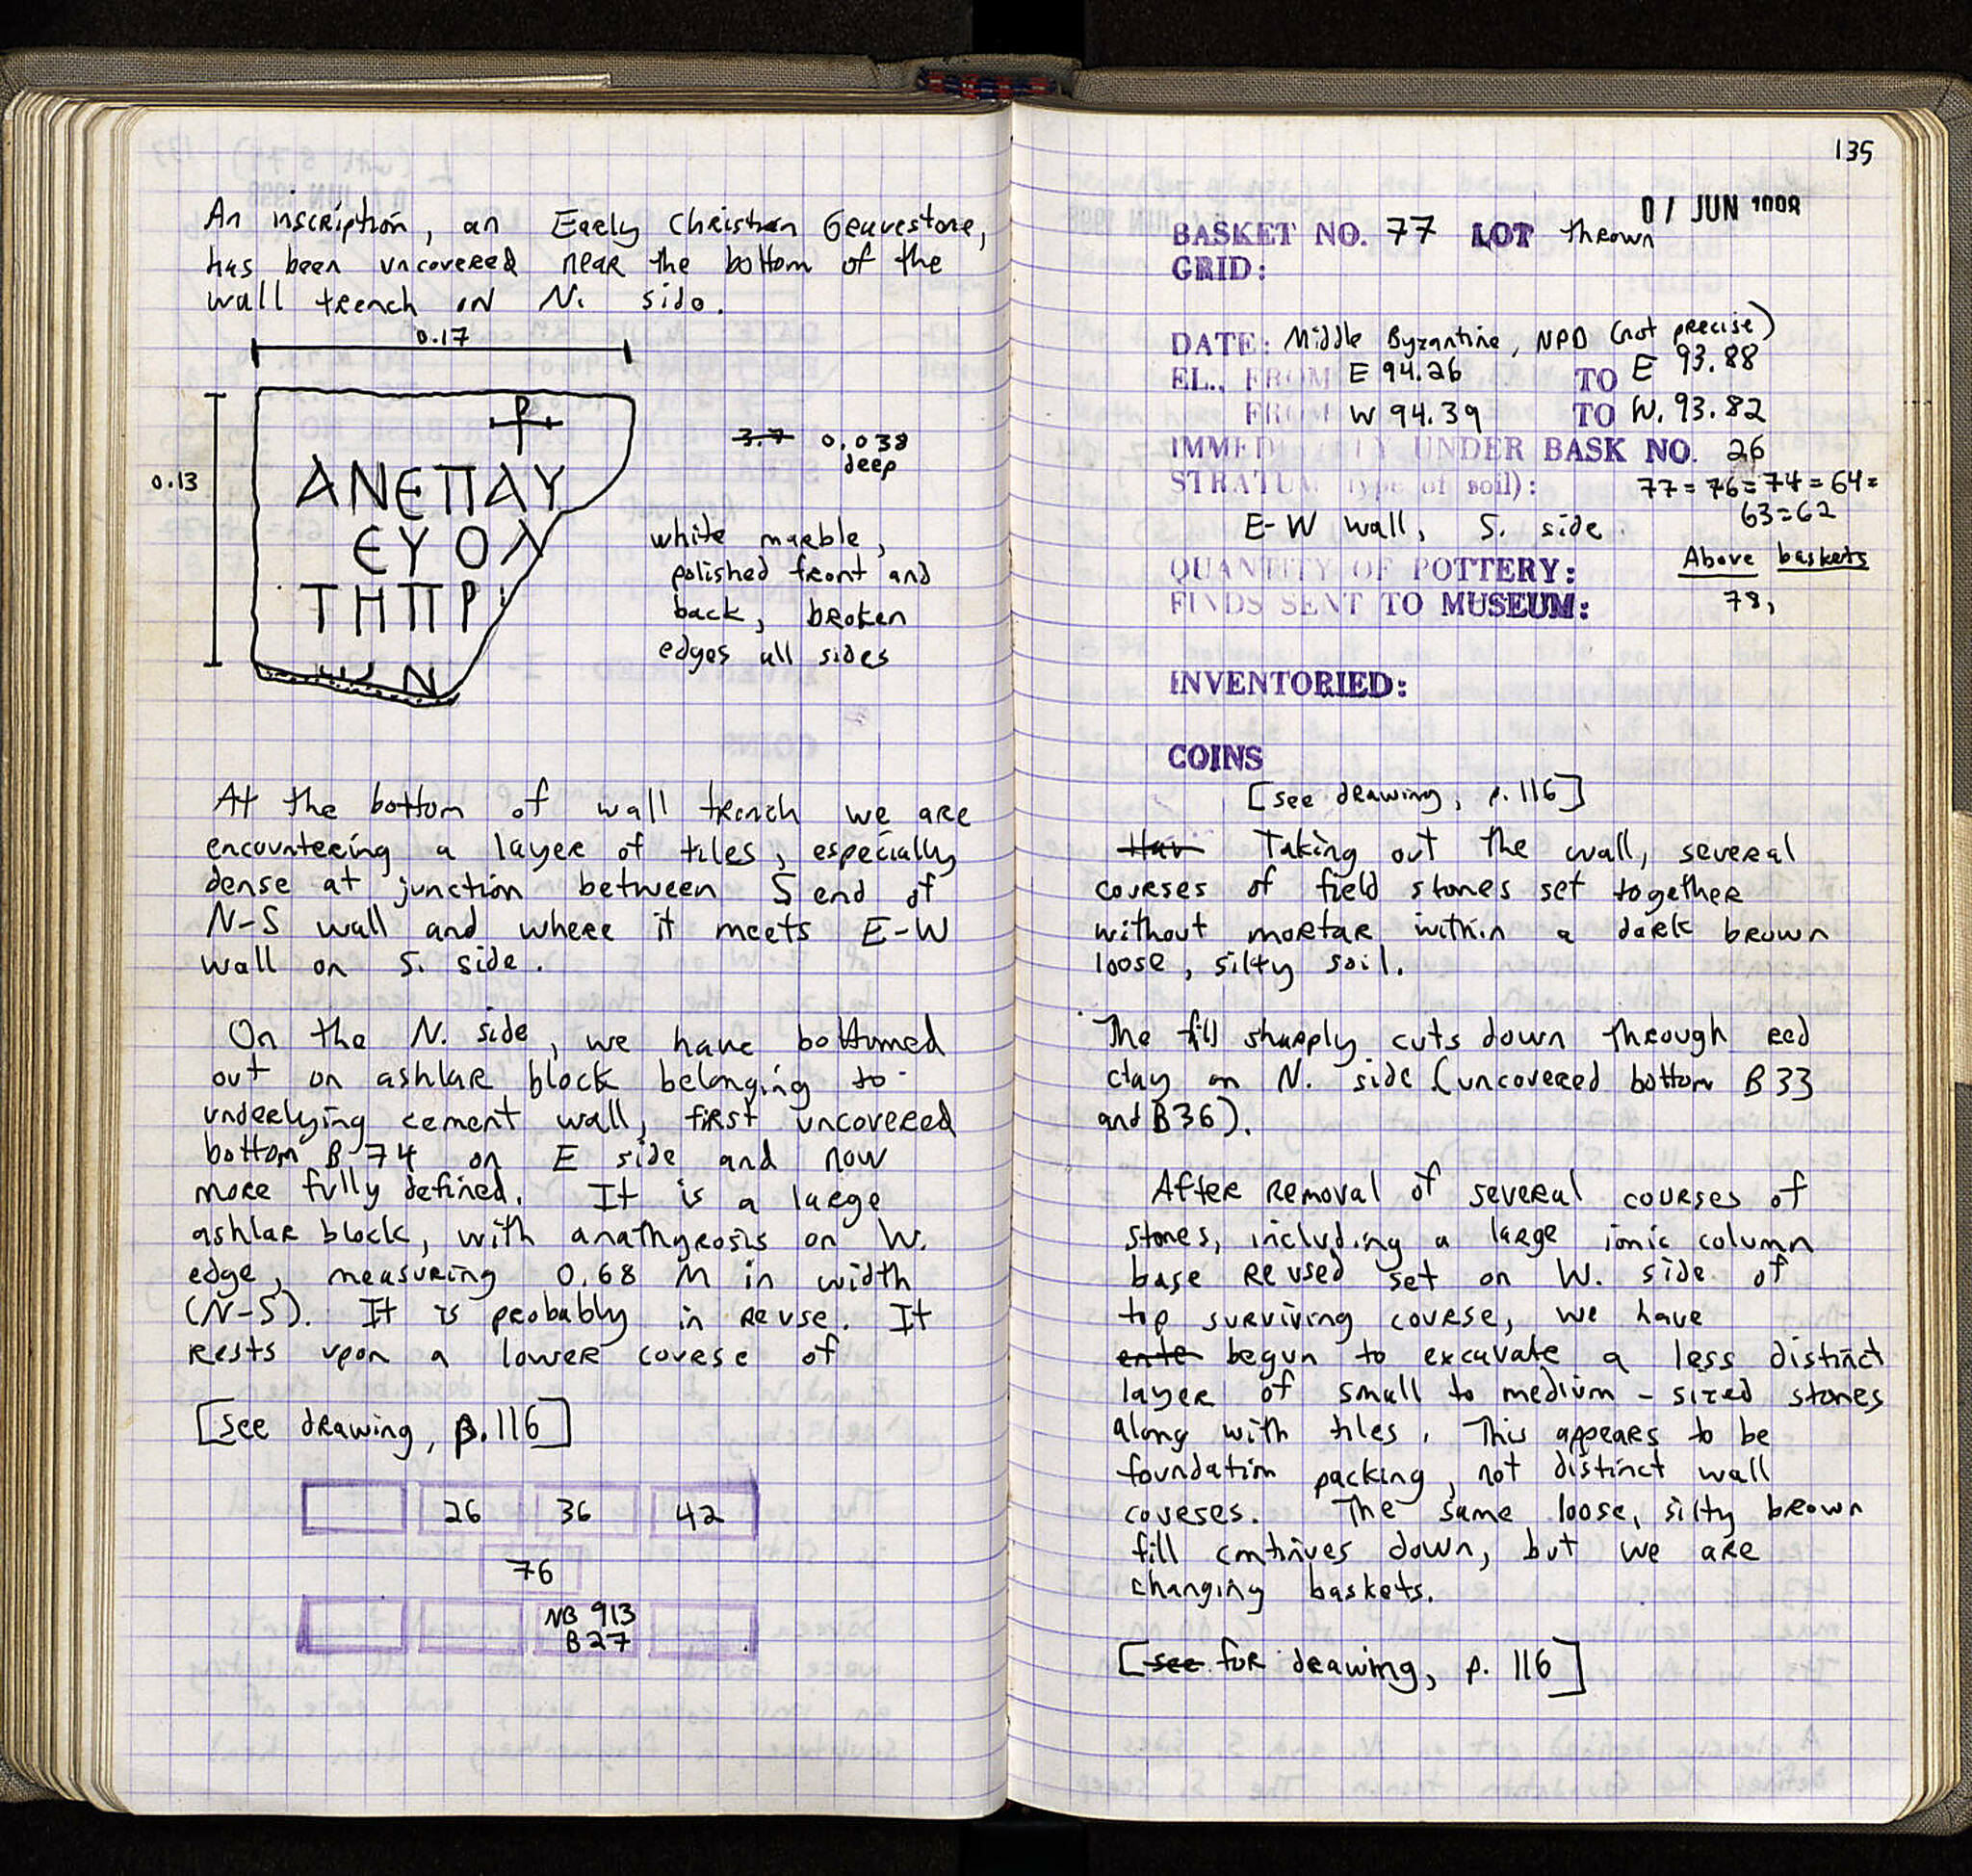 An inscription, an Early Christian Gravestone,
has been uncovered near the bottom of the
wall trench on N. side.
0.17
0.13
ΑΝΕΠΑΥ
ΕΥΟΛ
ΤΗΠΡ
N
3.7 0.038
deep
white marble,
polished front and
back, broken
edges all sides
At the bottom of wall trench we are
encountering a layer of tiles, especially
dense at junction between S end of
N-S wall and where it meets E-W
wall on S. side.
On the N. side, we have bottomed
out on ashlar block belonging to
underlying cement wall, first uncovered
bottom B 74 on E side and now
more fully defined. It is a large
ashlar block, with anathyrosis on W.
edge, measuring 0.68 M in width
(N-S). It is probably in reuse. It
rests upon a lower course of
[see drawing, p. 116]
26 36 42
76
NB 913
B 27
135
01 JUN 1998
BASKET NO. 77 LOT thrown
GRID:
DATE: Middle Byzantine, NPD (not precise)
EL., FROM E 94.26 TO E 93.88
FROM W 94.39 TO W. 93.82
IMMEDIATELY UNDER BASK NO. 26
STRATUM (type of soil): 77=76=74=64=
63=62
E-W wall, S. side
QUANTITY OF POTTERY:
Above baskets
FINDS SENT TO MUSEUM: 78,
INVENTORIED:
COINS
[see drawing, p. 116]
Hav Taking out the wall, several
courses of field stones set together
without mortar within a dark brown
loose, silty soil.
The fill sharply cuts down through red
clay on N. side (uncovered bottom B33
and B36).
After removal of several courses of
stones, including a large ionic column
base reused set on W. side of
top surviving course, we have
ente begun to excavate a less distinct
layer of small to medium-sized stones
along with tiles. This appears to be
foundation packing, not distinct wall
courses. The same loose, silty brown
fill continues down, but we are
changing baskets.
[see for drawing, p. 116]